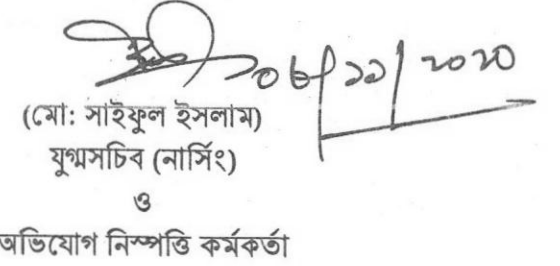 ০৮/১১/২০২০
(মো: সাইফুল ইসলাম)
যুগ্মসচিব (নার্সিং)
ও
অভিযোগ নিস্পত্তি কর্মকর্তা